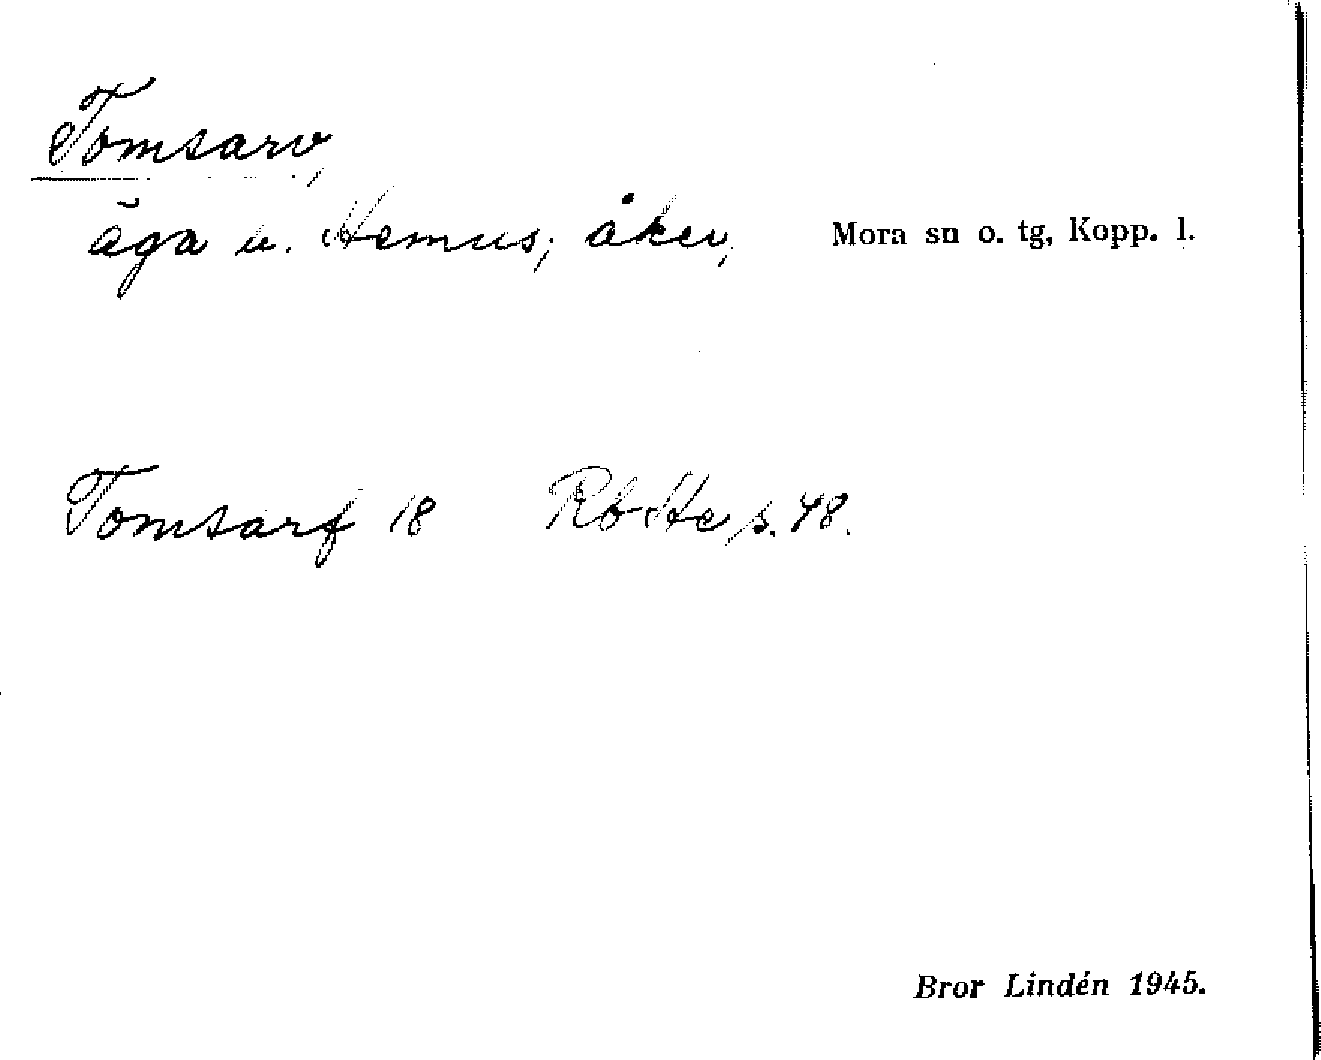 Tomsarv,
äga u. Hemus; åker, Mora sn o. tg, Kopp. l.
Tomsarf 18 Rb Ste s. 48.
Bror Lindén 1945.